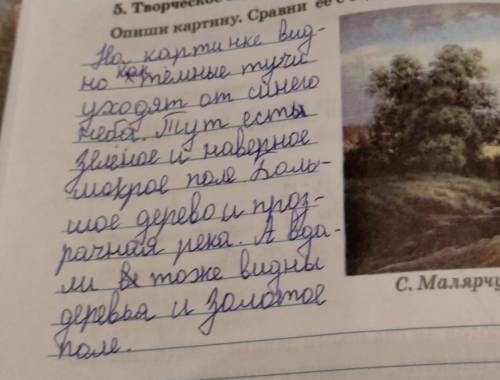 5. Творческое
Опиши картину. Сравни её с
На картинке вид-
но как тёмные тучи
уходят от синего
неба. Тут есть
зелёное и наверное
мокрое поле Боль-
шое дерево и проз-
рачная река. А вда-
ли тоже видны
деревья и золотое
поле.
С. Малярчу